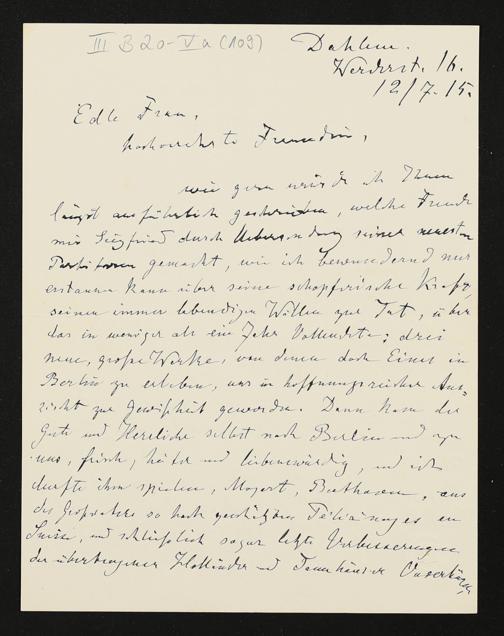 III B 20-Va (109)
Dahlem.
Werderst. 16.
12/7. 15.
Edle Frau,
hochverehrte Freundin,
wie gern würde ich Ihnen
längst ausführlich geschrieben, welche Freude
mir Siegfried durch Uebersendung seiner neuesten
Partituren gemacht, wie ich bewundernd nur
erstaunen kann über seine schöpferische Kraft,
seinen immer lebendigen Willen zur Tat, über
das in weniger als ein Jahr Vollendete; drei
neue, große Werke, von denen doch Eines in
Berlin zu erleben, uns in hoffnungsreicher Aus=
sicht zur Gewißheit geworden. Dann kam der
Gute und Herrliche selbst nach Berlin und zu
uns, frisch, heiter und liebenswürdig, und ich
durfte ihm spielen, Mozart, Beethoven, aus
des Großvaters so hoch geschätzten Pélérinages en
Suisse, und schließlich sogar letzte Verbesserungen
der übertragenen Holländer und Tannhäuser Ouvertüren